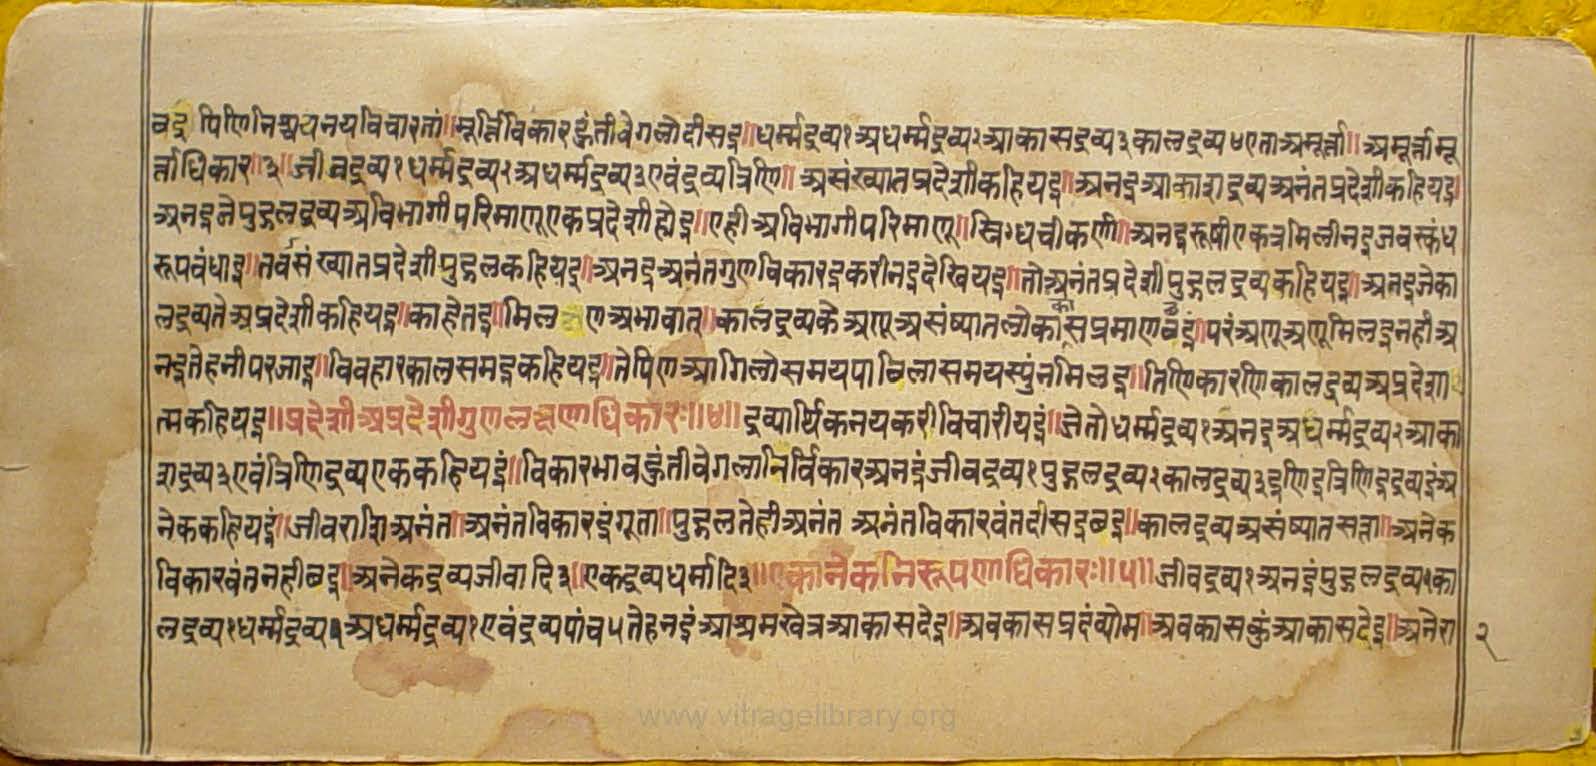 बइ पिणि निश्चयनयविचारतां॥मूर्त्तिविकारइंहुंतीवेगलोदीसइ॥धर्म्मद्रव्य१अधर्म्मद्रव्य२आकासद्रव्य३कालद्रव्य४एताअमूर्त्ता॥अमूर्त्तामू
र्त्ताधिकार॥३॥जीवद्रव्य१धर्म्मद्रव्य२अधर्म्मद्रव्य३एवंद्रव्यत्रिणि॥असंख्यातप्रदेशीकहियइ॥अनइआकाशद्रव्यअनंतप्रदेशीकहियइ॥
अनइतेपुद्गलद्रव्यअविभागीपरिमाणूएकप्रदेशीहोइ॥एहीअविभागीपरिमाणू॥स्निग्धचीकणी॥अनइरूषीएकत्रमिलीनइजवस्कंध
रूपबंधाइ॥तवसंख्यातप्रदेशीपुद्गलकहियइ॥अनइअनंतगुणविकारइकरीनइदेखियइ॥तोअनंतप्रदेशीपुद्गलद्रव्यकहियइ॥अनइजेका
लद्रव्यतेअप्रदेशीकहियइ॥काहेतइ॥मिलणअभावात्॥कालद्रव्यकेअणूअसंष्यातलोकाकासप्रमाणबइं॥परंअणूअणूमिलइनहीअ
नइतेहनीपरजाइ॥विवहारकालसमइकहियइ॥तेपिणआगिलोसमयपाबिलासमयस्युंनमिलइ॥तिणिकारणिकालद्रव्यअप्रदेशा
त्मकहियइ॥प्रदेशीअप्रदेशीगुणलक्षणाधिकारः॥४॥द्रव्यार्थिकनयकरीविचारीयइं॥जेतोधर्म्मद्रव्य१अनइअधर्म्मद्रव्य२आका
शद्रव्य३एवंत्रिणिद्रव्यएककहियइं॥विकारभावहुंतीवेगलानिर्विकारअनइंजीवद्रव्य१पुद्गलद्रव्य२कालद्रव्य३इणित्रिणिद्रव्यइंअ
नेककहियइं॥जीवराशिअनंत॥अनंतविकारइंगूता॥पुद्गलतेहीअनंत अनंतविकारवंतदीसइबइ॥कालद्रव्यअसंष्यातसत्ता॥अनेक
विकारवंतनहीबइ॥अनेकद्रव्यजीवादि३॥एकद्रव्यधर्मादि३॥एकानेकनिरूपणाधिकारः॥५॥जीवद्रव्य१अनइंपुद्गलद्रव्य१का
लद्रव्य१धर्म्मद्रव्य१अधर्म्मद्रव्य१एवंद्रव्यपांच५तेहनइंआश्रमखेत्रआकासदेइ॥अवकासप्रदंव्योम॥अवकासकुंआकासदेइ॥अनेरा
२
www.vitragelibrary.org